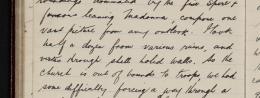 by the fine spire &
famous leaning Madonna, compose one
vast picture from any outlook. I took
half a dozen from various ruins, and
notes through shell holed walls. As the
church is out of bounds to troops, we had
some difficulty forcing a way through a